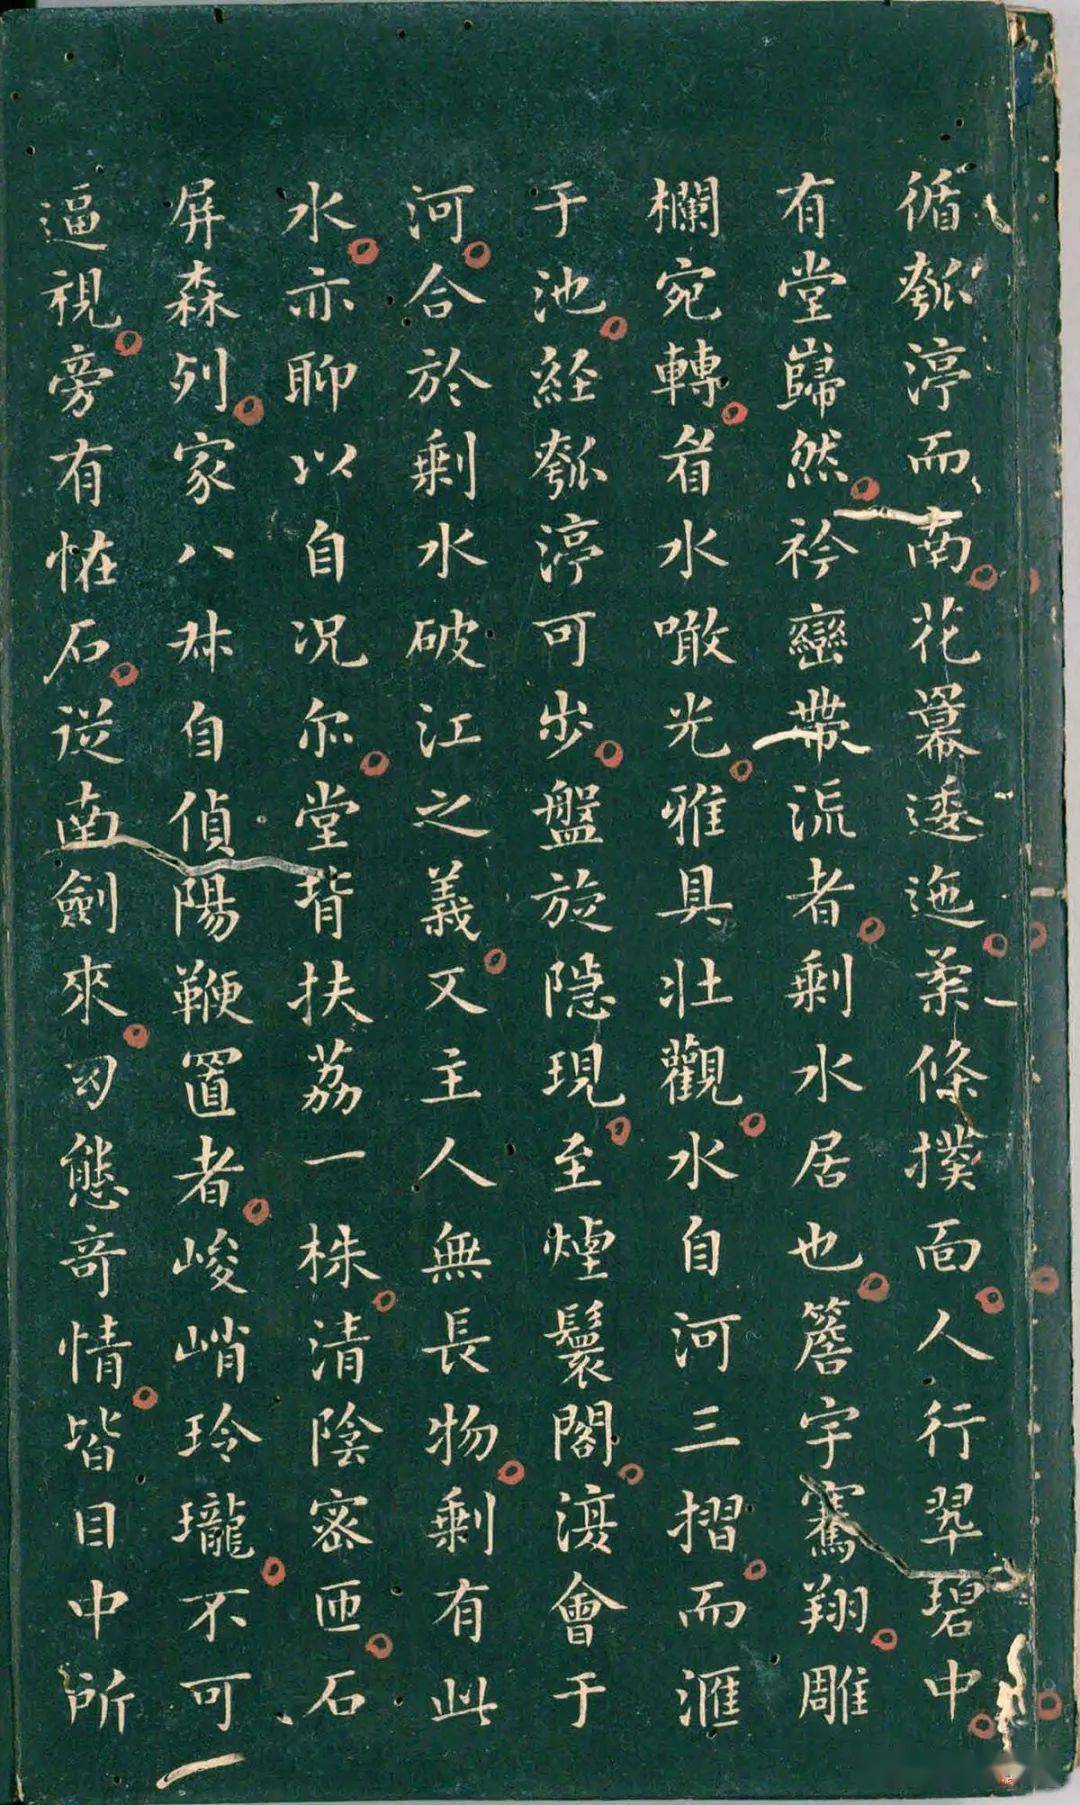 循瓠渟而南花羃逶迤柔條撲面人行翠碧中
有堂巋然衿巒帶流者剩水居也簷宇騫翔雕
欄宛轉看水噉光雅具壯觀水自河三摺而滙
于池経瓠渟可步盤旋隱現至煙鬟閣湨會于
河合於剩水破江之義又主人無長物剩有此
水亦聊以自况尔堂背扶荔一株清陰宻匝石
屏森列家八叔自偵陽鞭置者峻峭玲瓏不可
逼視旁有恠石從南劍來幻態奇情皆目中所